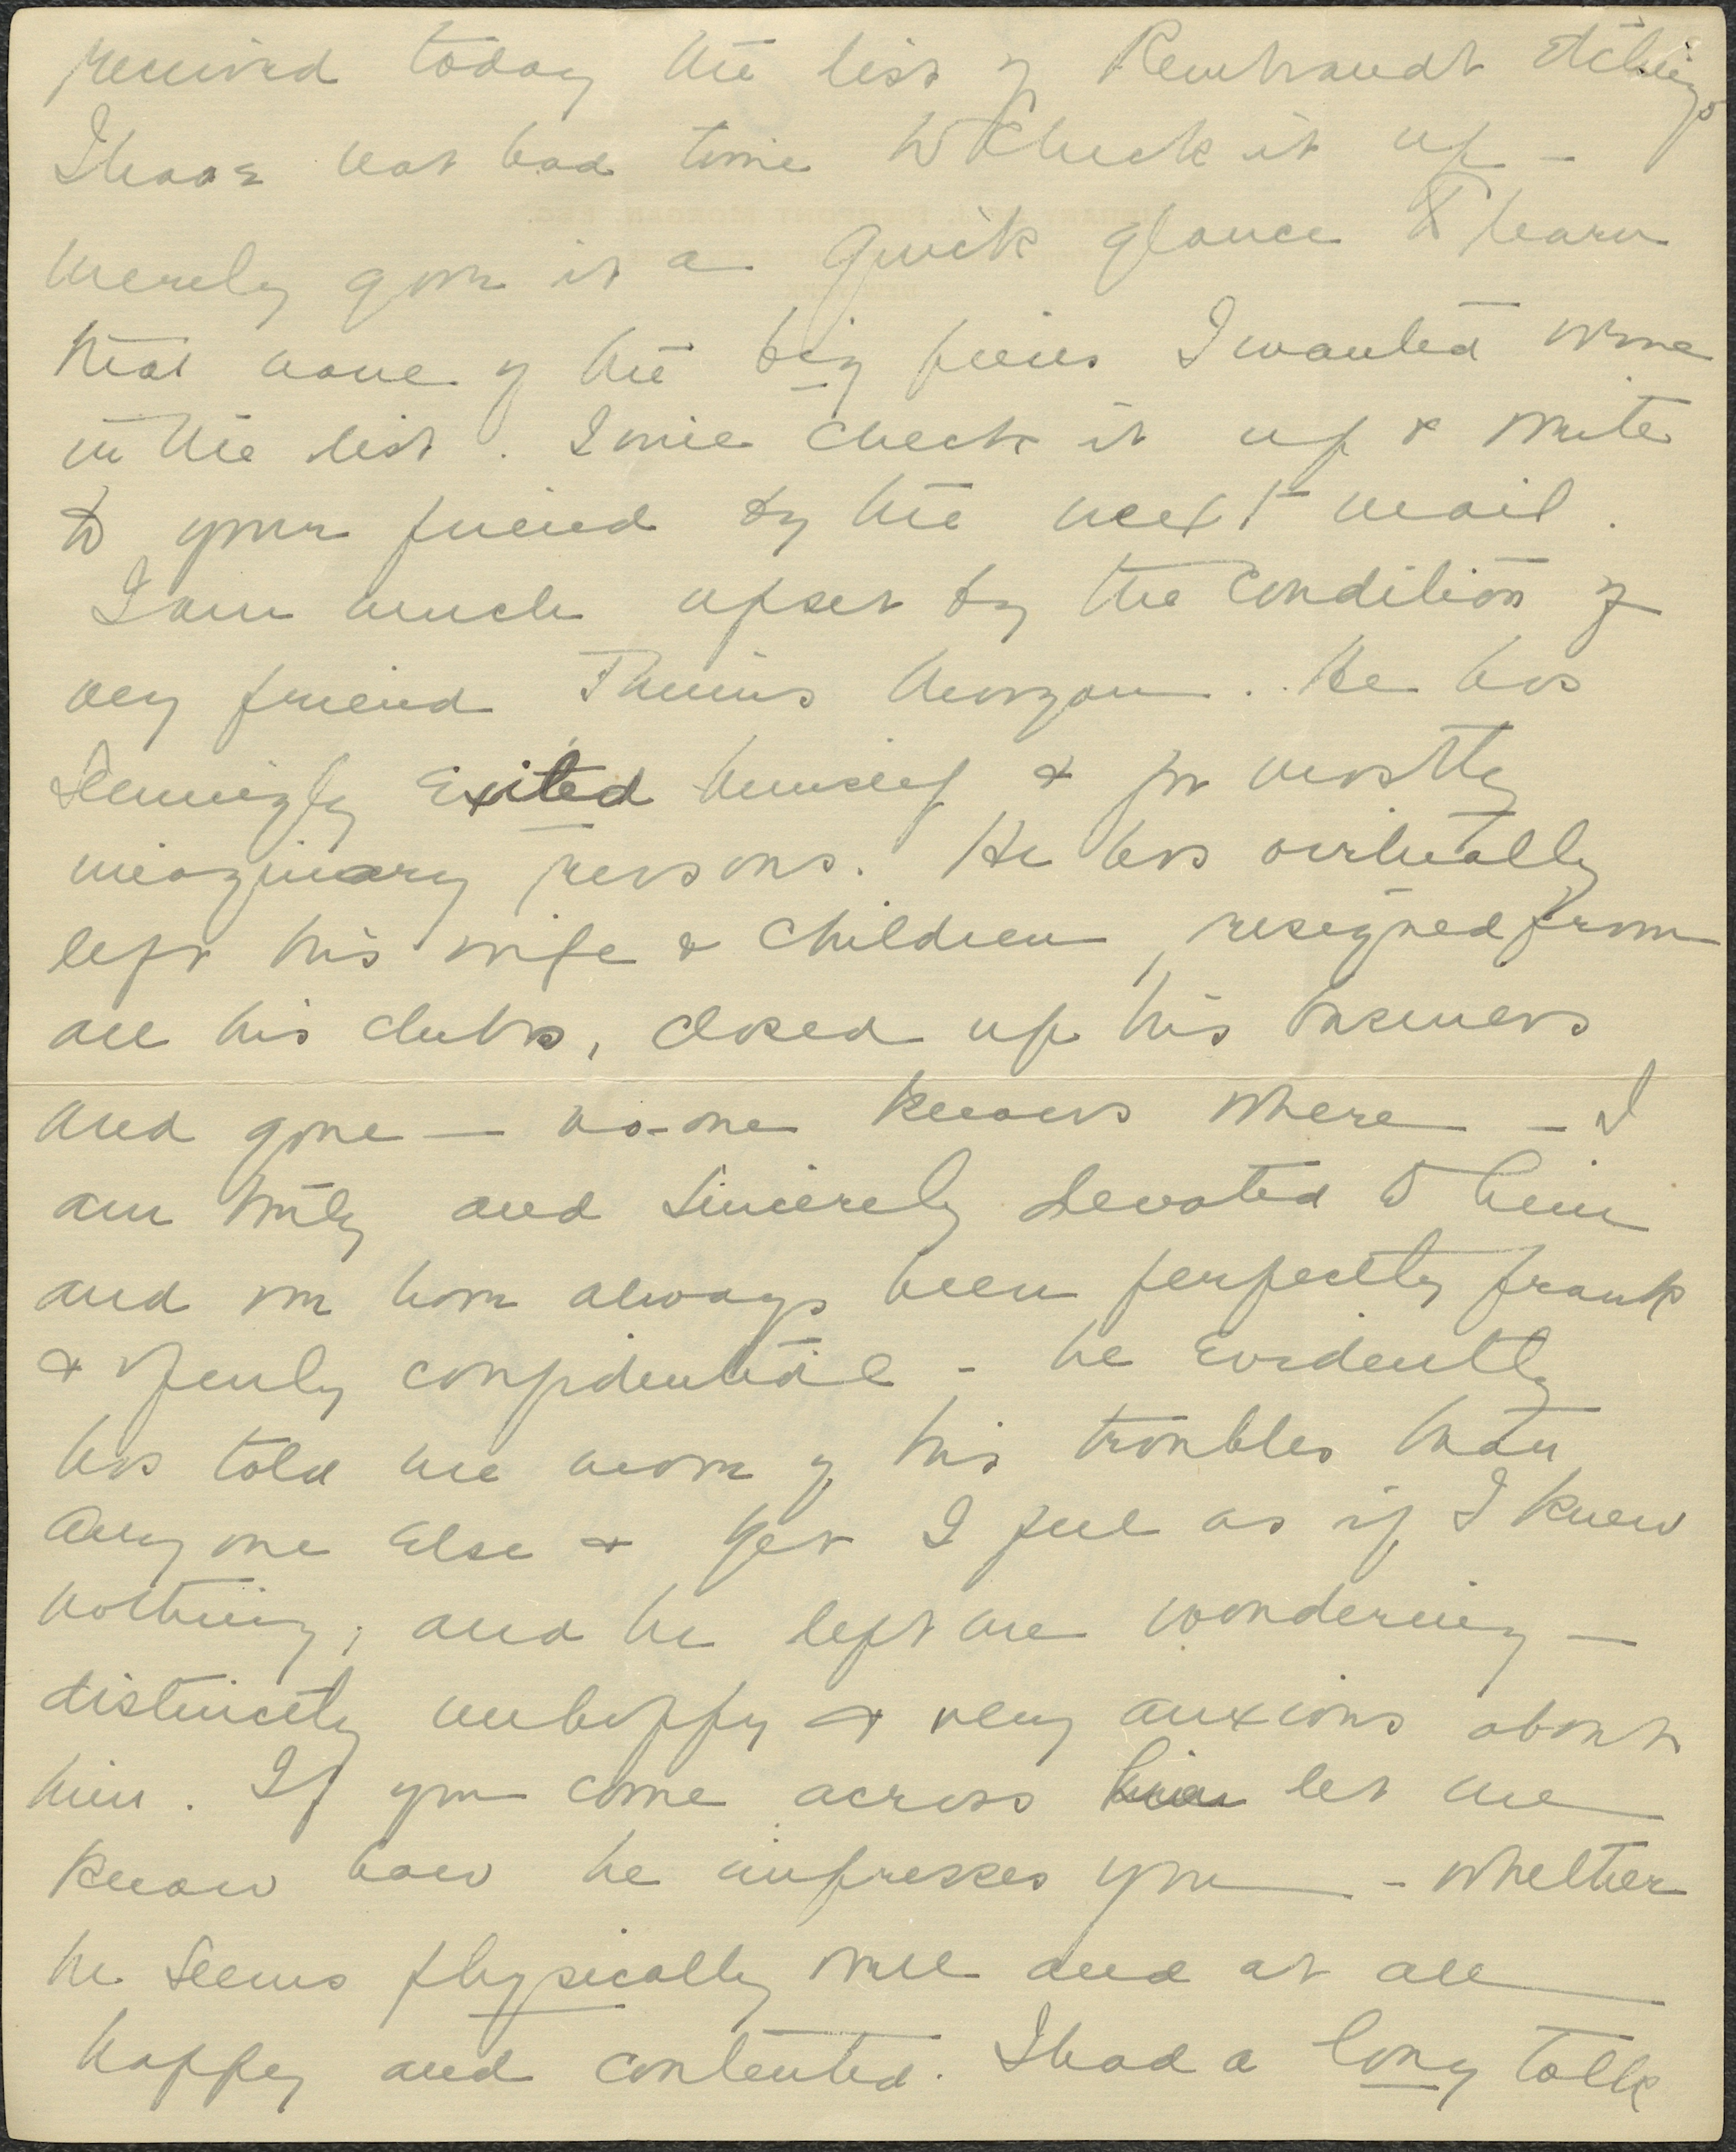 received today the list of Rembrandt etchings
I have not had time to check it up –
merely gave it a quick glance & learn
that none of the big pieces I wanted were
in the list. I will check it up & write
to your friend by the next mail.
I am much upset by the condition of
my friend Junius Morgan. He has
seemingly exited himself & for mostly
imaginary reasons. He has virtually
left his wife & children, resigned from
all his clubs, closed up his business
and gone — no-one knows where – I
am truly and sincerely devoted to him
and we have always been perfectly frank
& openly confidential – he evidently
has told me more of his troubles than
any one else & yet I feel as if I knew
nothing; and he left me wondering —
distinctly unhappy & very anxious about
him. If you come across him let me
know how he impresses you – whether
he seems physically well and at all
happy and contented. I had a long talk